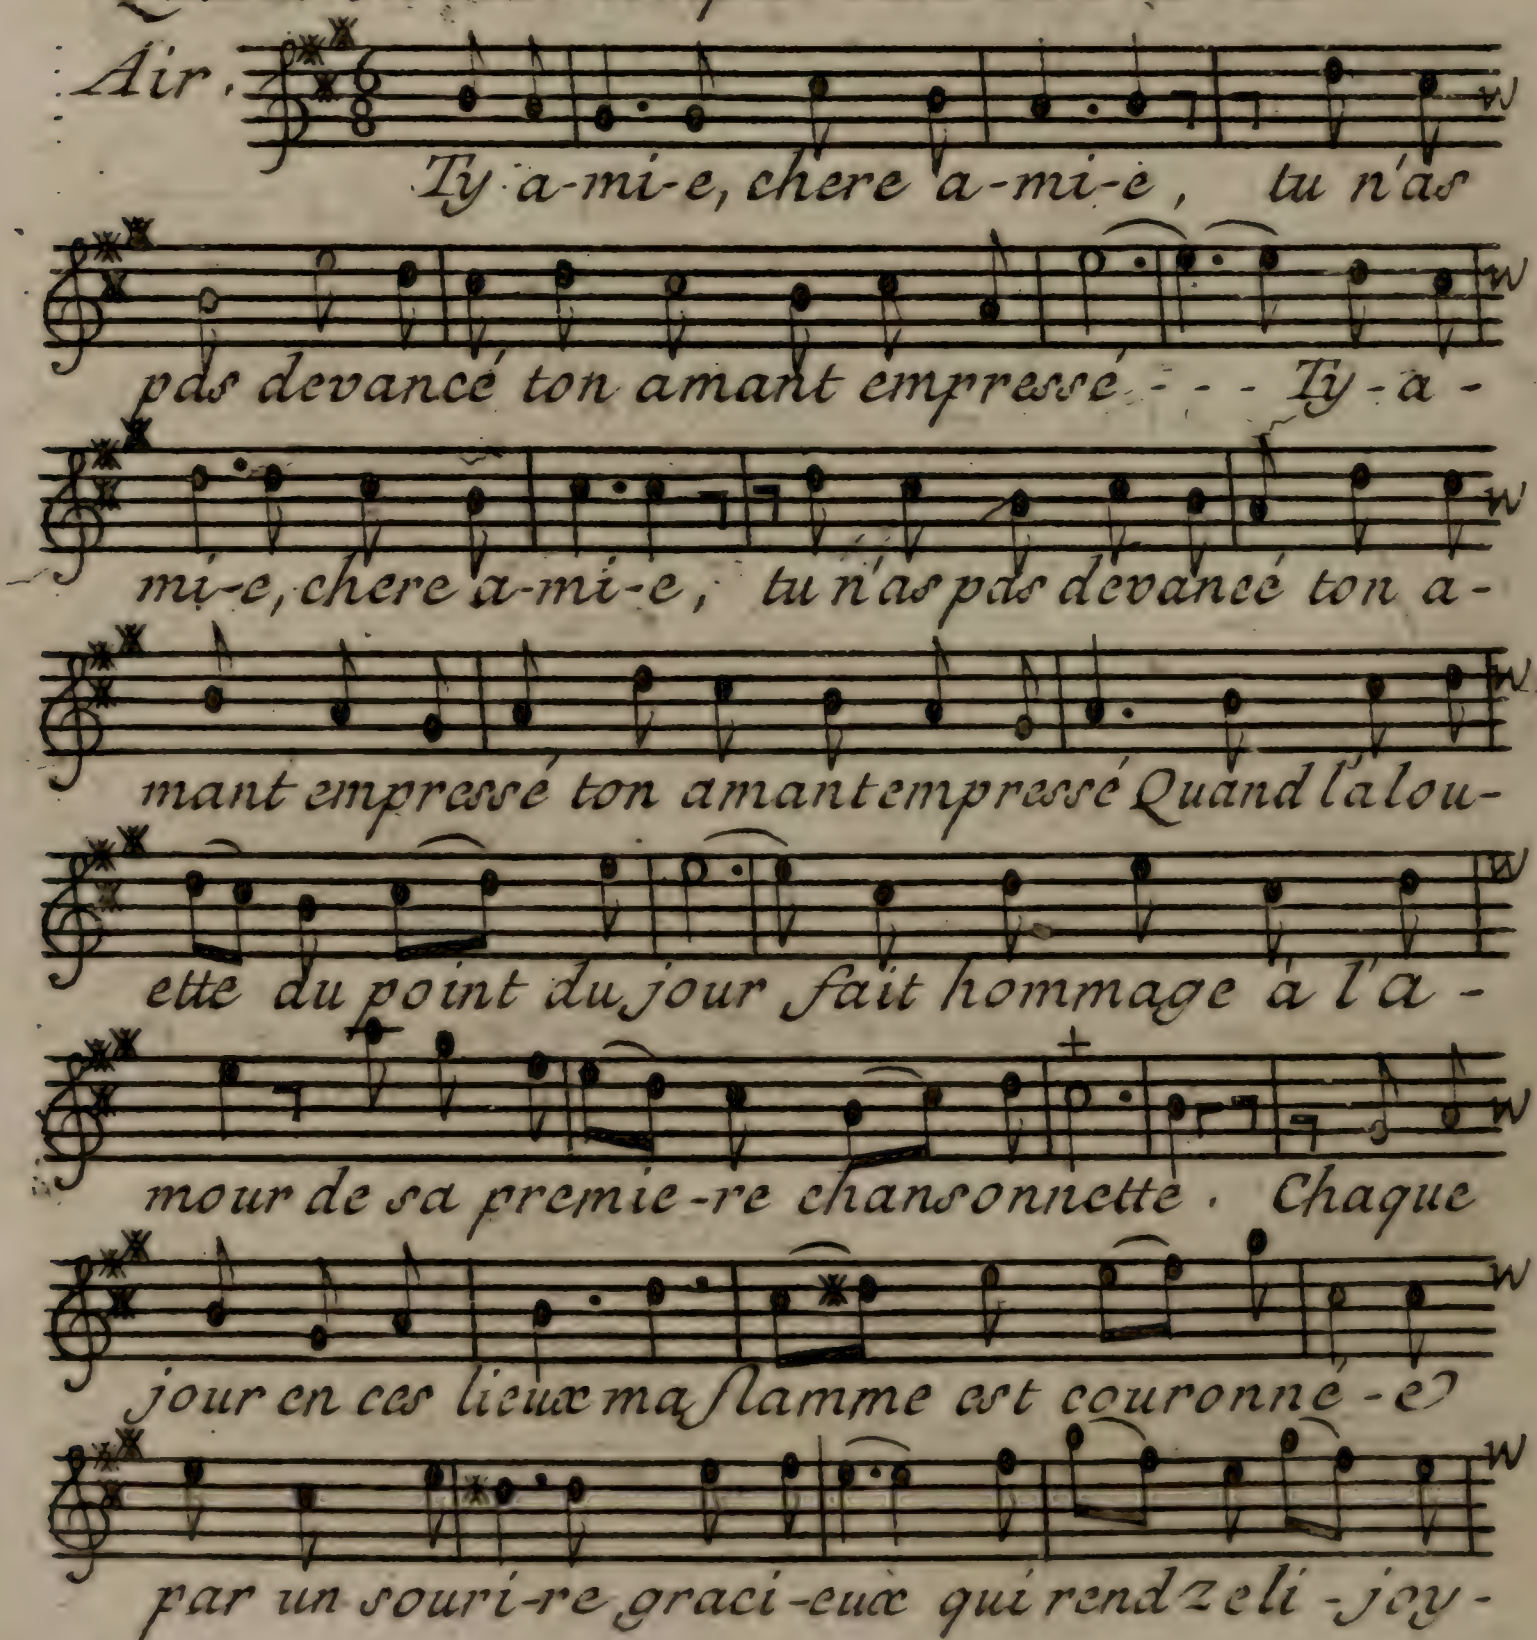 Air.
6
8
Ty a-mi-e, chere a-mi-e, tu n'as
pas devancé ton amant empressé - - - Ty-a-
mi-e, chere a-mi-e, tu n'as pas devancé ton a-
mant empressé ton amant empressé Quand l'alou-
ette du point du jour fait hommage à l'a-
mour de sa premie-re chansonnette. Chaque
jour en ces lieux ma flamme est couronné-e
par un souri-re graci-eux qui rend zeli-joy-